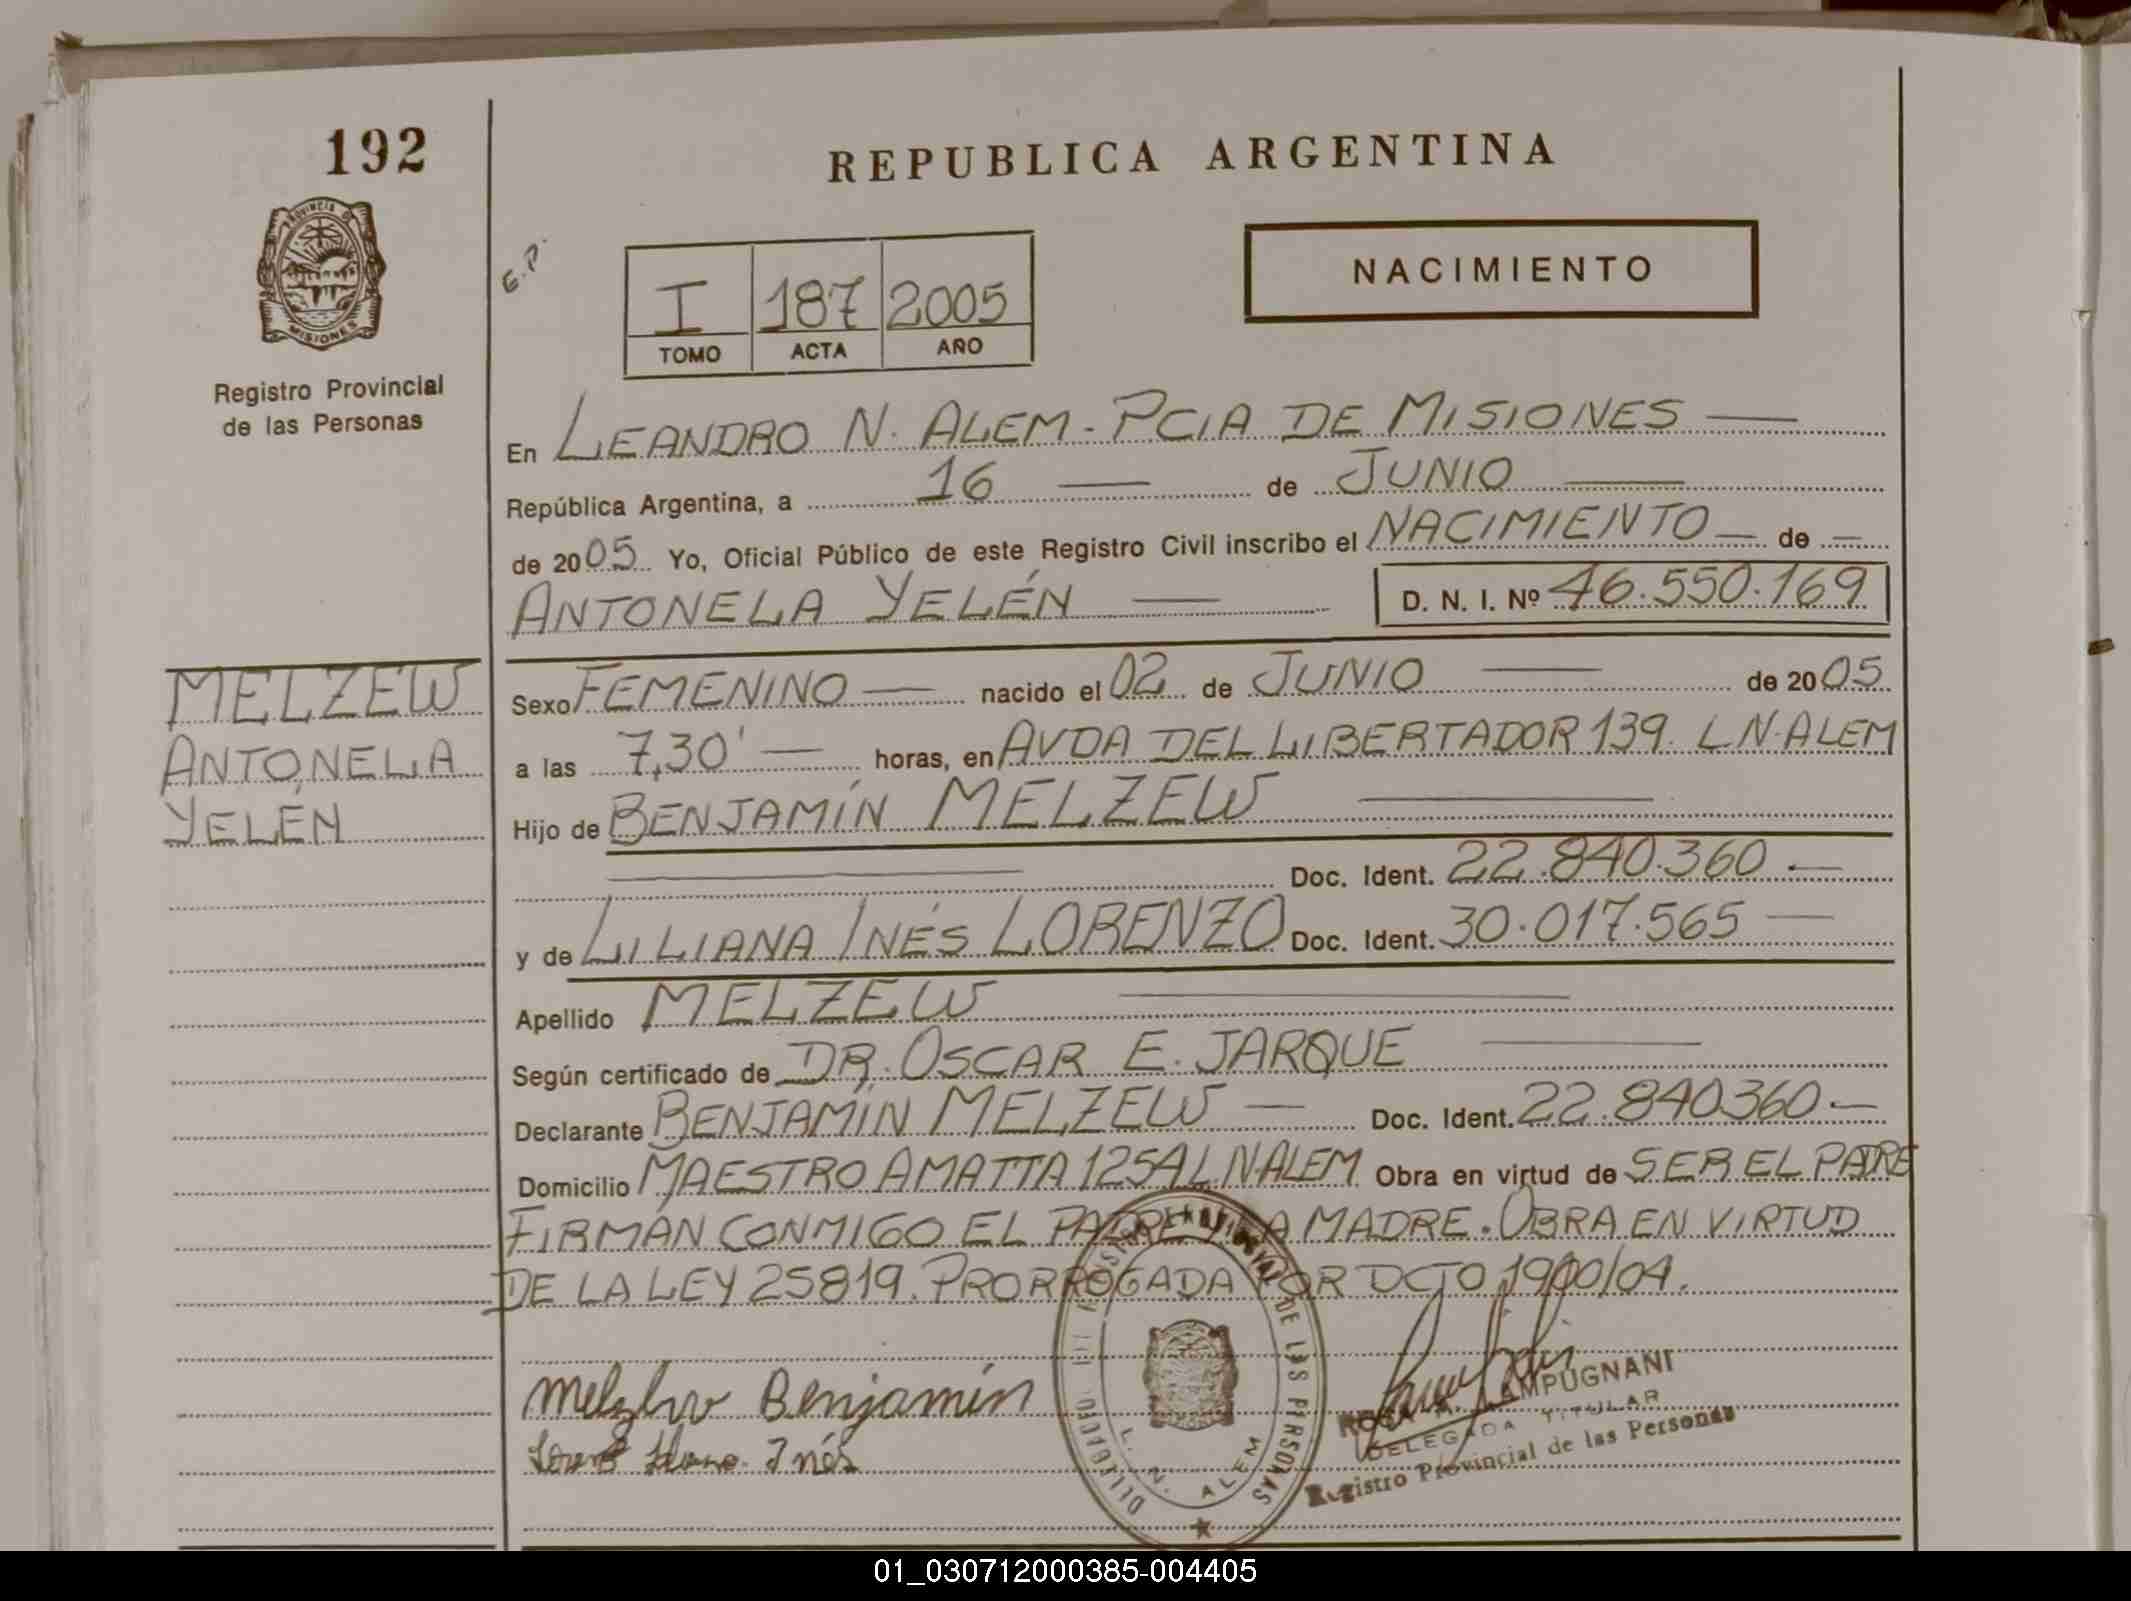 192
REPUBLICA ARGENTINA
PROVINCIA DE
MISIONES
Registro Provincial
de las Personas
E.P.
NACIMIENTO
I 187 2005
TOMO ACTA AÑO
En LEANDRO N. ALEM - PCIA DE MISIONES —
República Argentina, a 16 — de JUNIO —
de 2005 Yo, Oficial Público de este Registro Civil inscribo el NACIMIENTO — de —
ANTONELA YELÉN — D. N. I. Nº 46.550.169
MELZEW
ANTONELA
YELÉN
Sexo FEMENINO — nacido el 02 de JUNIO — de 2005
a las 7,30' — horas, en AVDA DEL LIBERTADOR 139. L N. ALEM
Hijo de BENJAMÍN MELZEW —
— Doc. Ident. 22.840.360 —
y de LILIANA INÉS LORENZO Doc. Ident. 30.017.565 —
Apellido MELZEW —
Según certificado de DR. OSCAR E. JARQUE —
Declarante BENJAMÍN MELZEW — Doc. Ident. 22.840360 —
Domicilio MAESTRO AMATTA 1254 L N. ALEM Obra en virtud de SER EL PADRE
FIRMAN CONMIGO EL PADRE Y LA MADRE. OBRA EN VIRTUD
DE LA LEY 25819. PRORROGADA POR DCTO 1900/04.
Melzew Benjamín
Inés
DE LAS PERSONAS
L. N. ALEM
LAMPUGNANI
DELEGADA TITULAR
Registro Provincial de las Personas
01_030712000385-004405